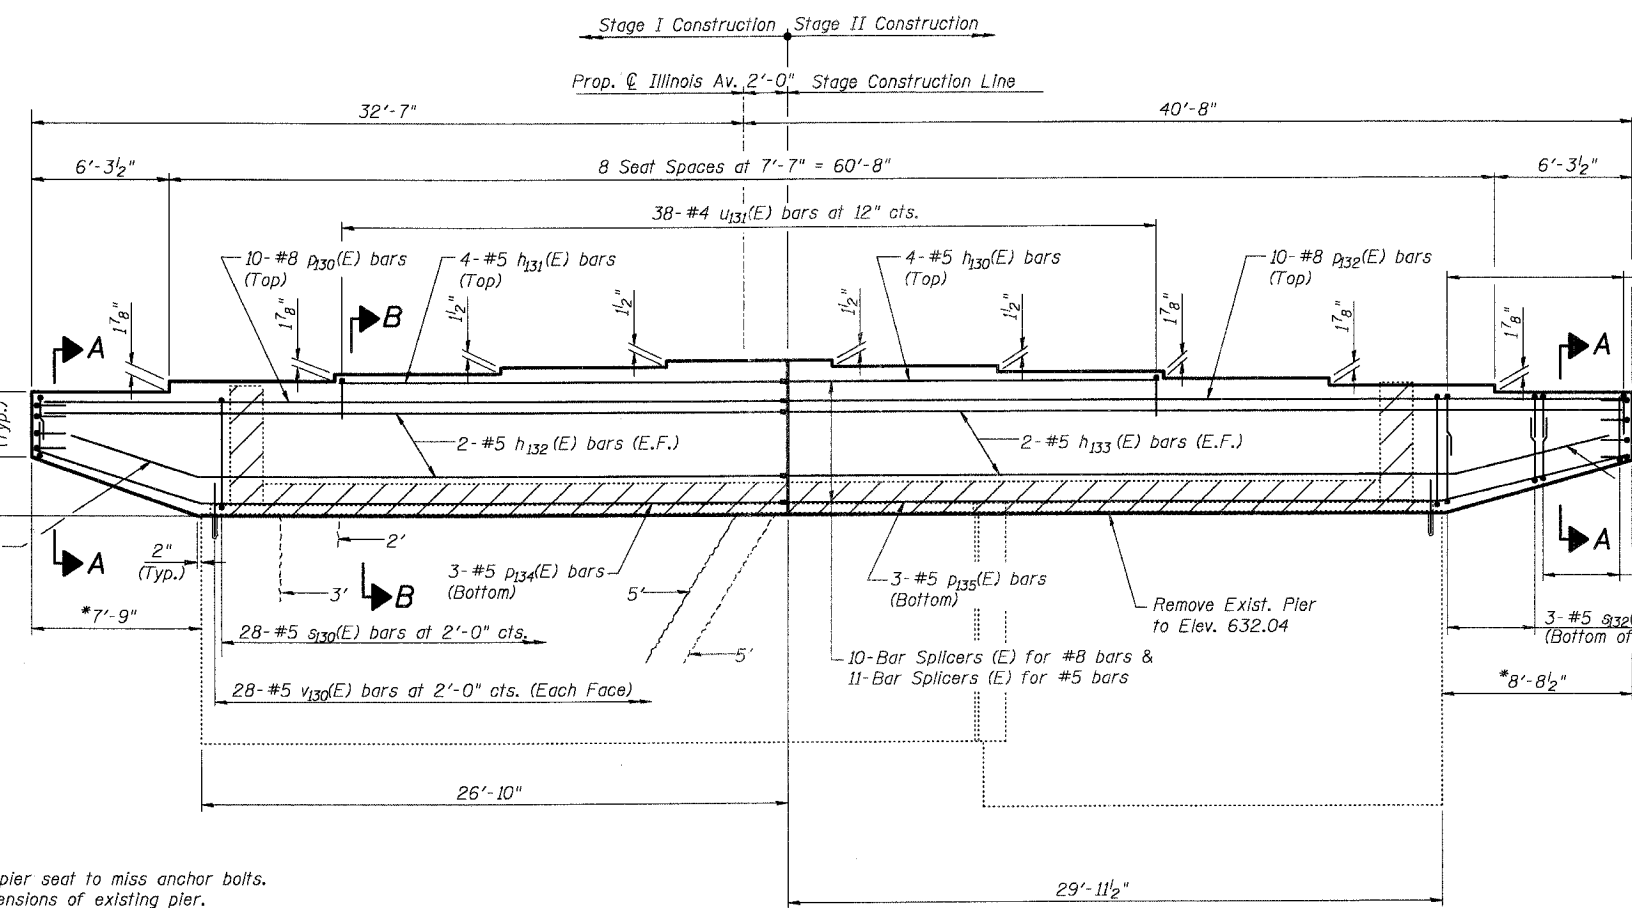 Stage I Construction Stage II Construction
Prop. ℄ Illinois Av. 2'-0" Stage Construction Line
32'-7" 40'-8"
6'-3½" 8 Seat Spaces at 7'-7" = 60'-8" 6'-3½"
38- #4 u131(E) bars at 12" cts.
10- #8 p130(E) bars
(Top)
4- #5 h131(E) bars
(Top)
4- #5 h130(E) bars
(Top)
10- #8 p132(E) bars
(Top)
1⅞" 1⅞" 1½" 1½" 1½" 1½" 1⅞" 1⅞" 1⅞"
B
A A
(Typ.)
2- #5 h132(E) bars (E.F.) 2- #5 h133(E) bars (E.F.)
A A
2"
(Typ.)
2'
3' B
3- #5 p134(E) bars
(Bottom)
5'
5'
3- #5 p135(E) bars
(Bottom)
Remove Exist. Pier
to Elev. 632.04
*7'-9"
28- #5 s130(E) bars at 2'-0" cts.
3- #5 s132(
(Bottom of
10-Bar Splicers (E) for #8 bars &
11-Bar Splicers (E) for #5 bars
28- #5 v130(E) bars at 2'-0" cts. (Each Face)
*8'-8½"
26'-10"
29'-11½"
pier seat to miss anchor bolts.
ensions of existing pier.